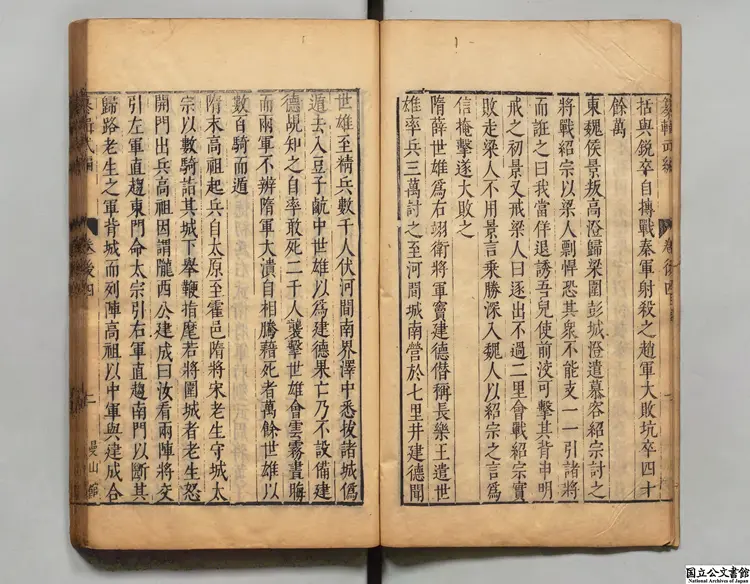 括與銳卒自摶戰秦軍射殺之趙軍大敗坑卒四十
餘萬
東魏侯景叛高澄歸梁圍彭城澄遣慕容紹宗討之
將戰紹宗以梁人剽悍恐其衆不能支一一引諸將
而誑之曰我當佯退誘吾兒使前汝可擊其背申明
戒之初景又戒梁人曰逐出不過二里會戰紹宗實
敗走梁人不用景言乗勝深入魏人以紹宗之言爲
信掩擊遂大敗之
隋薛世雄爲右翊衛將軍竇建德僭稱長樂王遣世
雄率兵三萬討之至河間城南營於七里井建德聞
世雄至精兵數千人伏河間南界澤中悉拔諸城僞
遁去入豆子䴚中世雄以爲建德果亡乃不設備建
德覘知之自率敢死二千人襲擊世雄會雲霧晝晦
而兩軍不辨隋軍大潰自相騰藉死者萬餘世雄以
數百騎而遁
隋末高祖起兵自太原至霍邑隋將宋老生守城太
宗以數騎詣其城下舉鞭指麾若將圍城者老生怒
開門出兵高祖因謂隴西公建成曰汝看兩陣將交
引左軍直趨東門命太宗引右軍直趨南門以斷其
歸路老生之軍背城而列陣高祖以中軍與建成合
卷後四
曼山館
国立公文書館
National Archives of Japan